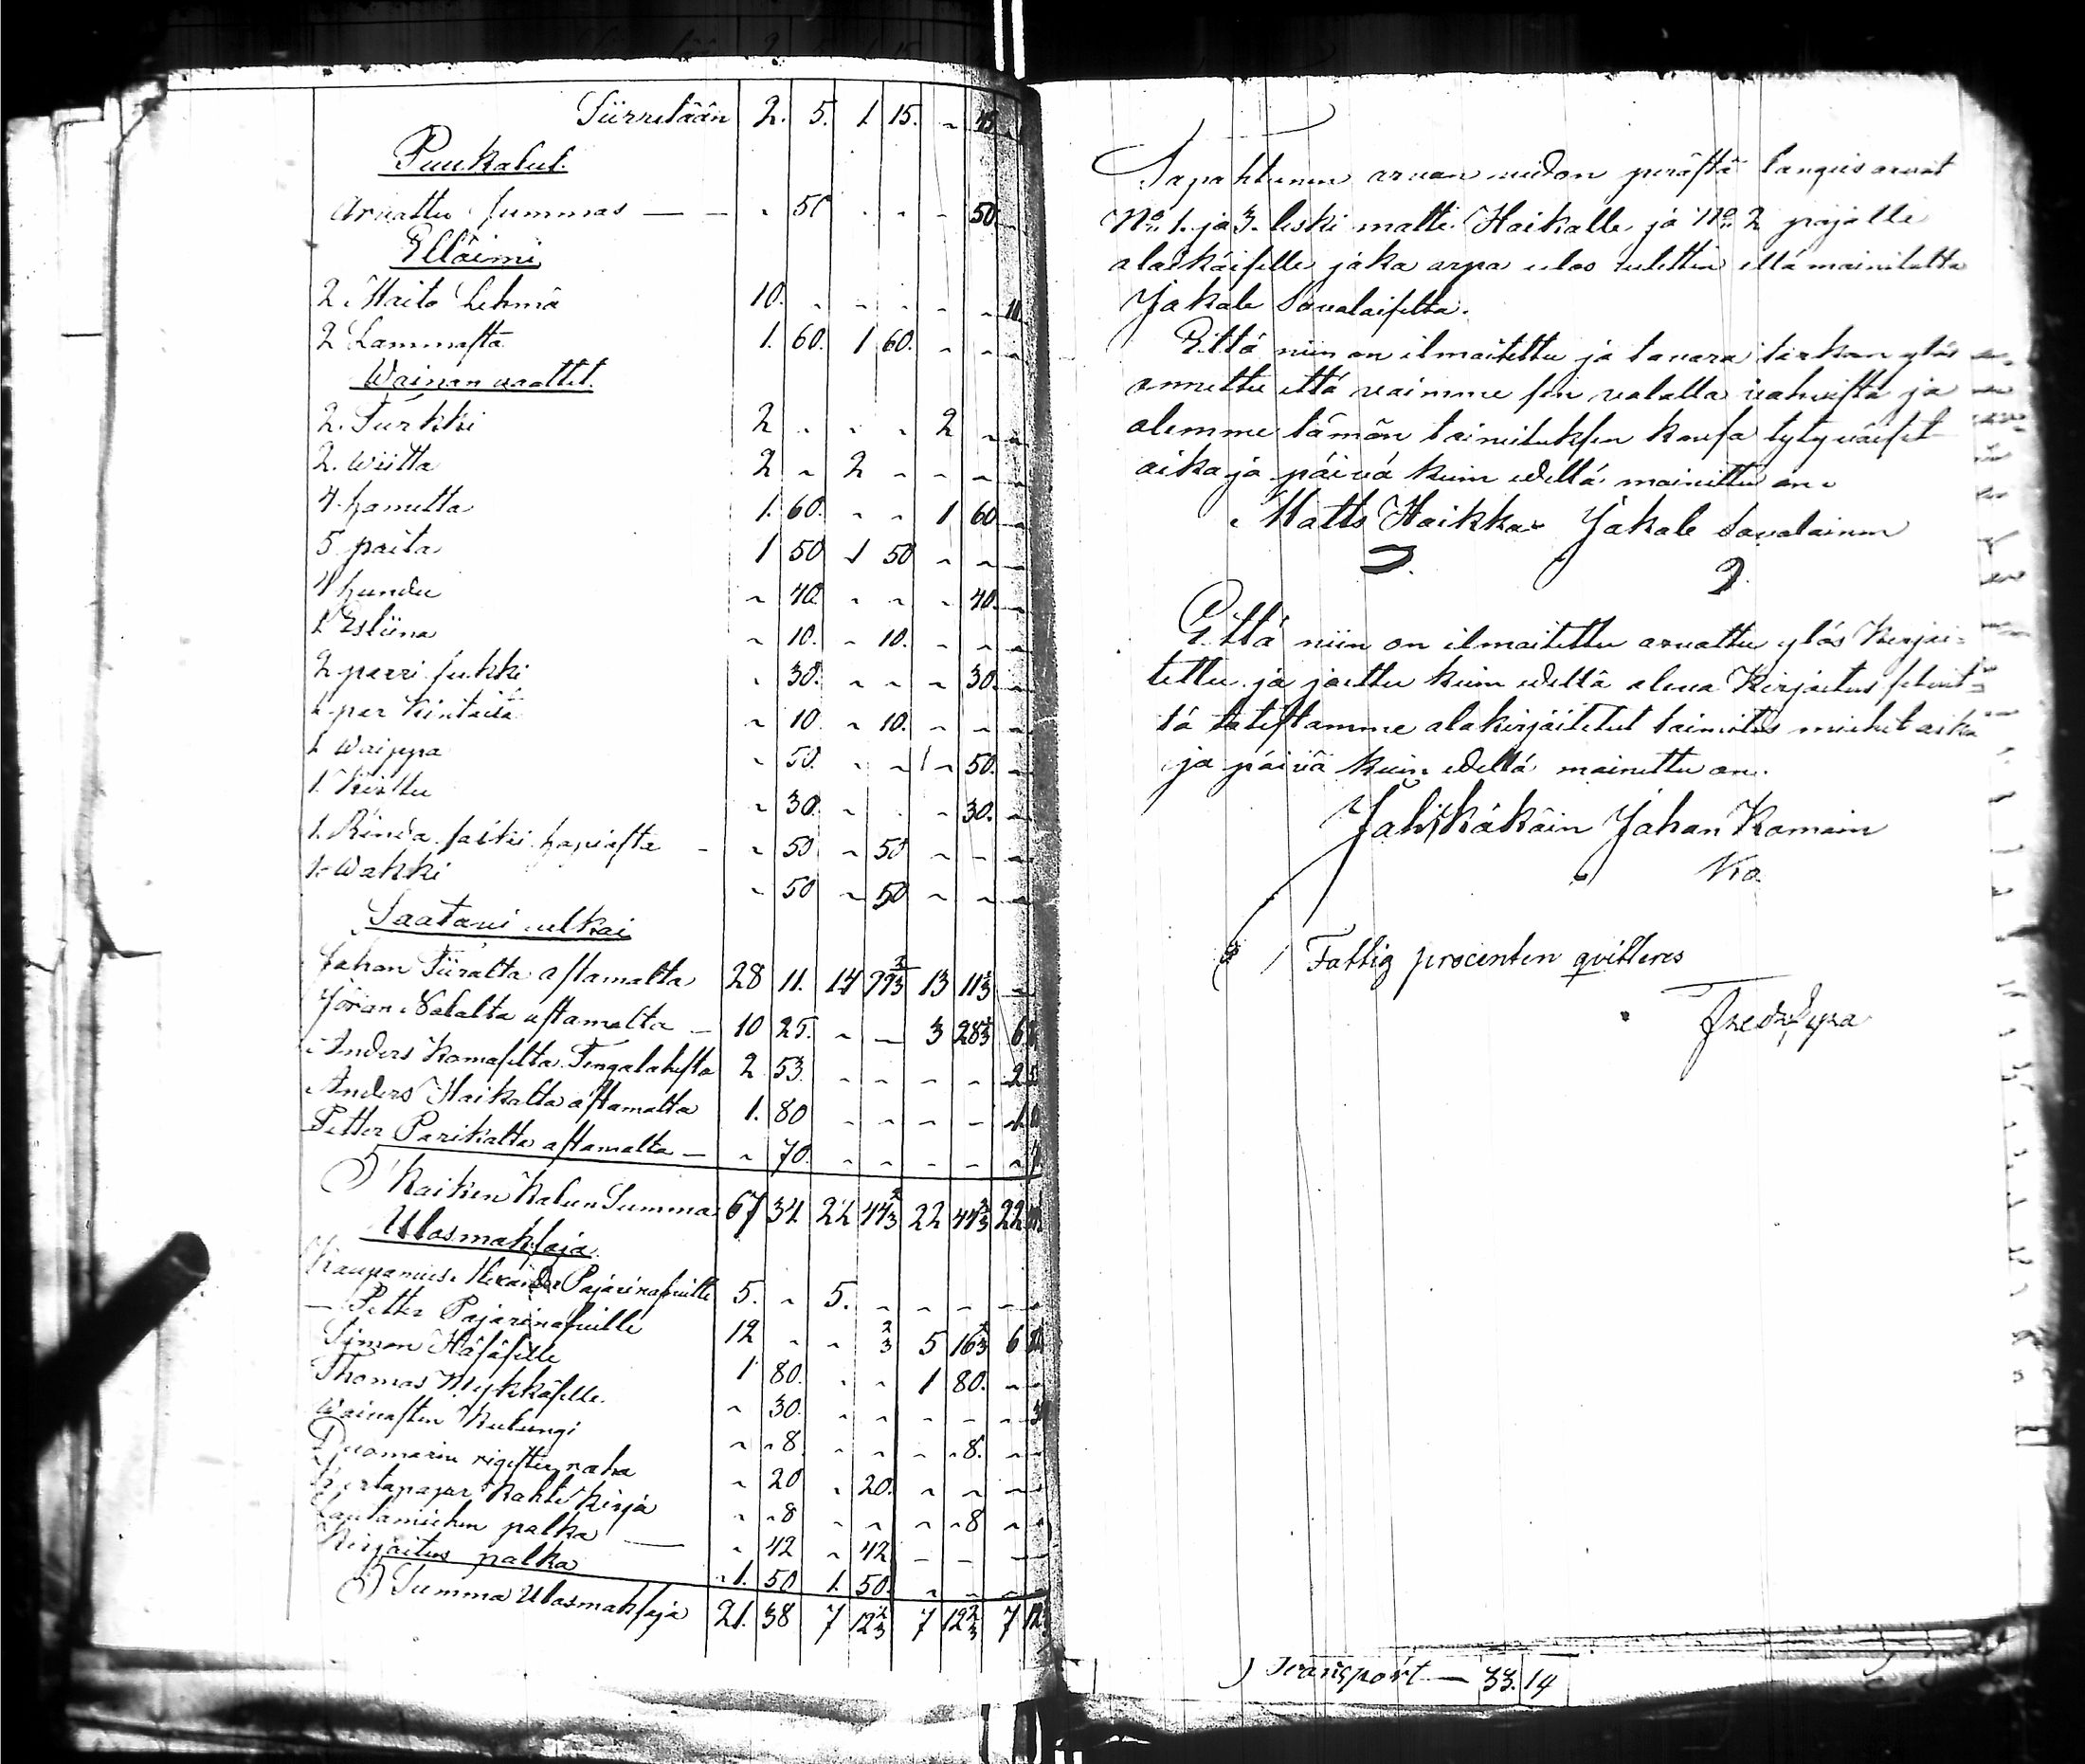 Siirretään 2. 5. 1 15. ~ 45
Puukalut.
Arvattu summas — — ~ 50 . ~ ~ 50.
Elläimi
2. Maito Lehmä 10. ~ ~ ~ ~ ~ 10
2 Lammasta 1. 60. 1 60. ~ ~ ~
Wainan vaattet.
2. Turkki 2 ~ ~ ~ 2 ~ ~
2. Wiitta 2 ~ 2 ~ ~ ~ ~
4. hametta 1. 60. ~ ~ 1 60
5 paita 1 50 1 50 ~ ~
4 hundu ~ 40. ~ ~ ~ 40.
1 Esliina ~ 10. ~ 10. ~ ~ ~
2 parri sukki ~ 30. ~ ~ ~ 30.
1 par Kintaita ~ 10. ~ 10. ~ ~ ~
1 Waippa ~ 50. ~ ~ ~ 50.
1. Kisttu ~ 30. ~ . ~ 30.
1. Rinda solki hapiasta — ~ 50 ~ 50 ~ ~ ~
1. Wakki ~ 50 ~ 50 ~ ~ ~
Saatavi ulkai
Johan Tiiralta astamalta 28 11. 14 99 2/3 13 11 1/3
Jöran Nokalta astamalta — 10 25. ~ — 3 28 1/3 6
Anders Komaselta Tengalahesta 2 53. ~ ~ ~ ~ 2
Anders Haikalta astamalta 1. 80 ~ ~ ~ ~ 1
Petter Parikalta astamalta — ~ 70. ~ ~ ~ ~ ~
Kaiken Kalun Summa 67 34 22 44 2/3 22 44 2/3 22
Ulosmaksaja
Kaupamies Alexander Pajarinasuille 5. ~ 5. ~ ~ ~ ~
— Petter Pajarinasuille 12 ~ ~ 2/3 5 16 2/3 6
Simon Häsäselle 1 80. ~ ~ 1 80. ~
Thomas Mykkäselle. ~ 30. ~ ~ ~ ~ ~
Waivasten Kukungi ~ 8 ~ ~ ~ 8. ~
Duomarin rigistter raha ~ 20 ~ 20. ~ ~ ~
Kartapapar Kahte Kirja ~ 8 ~ ~ ~ 8 ~
Lautamiehen palka — ~ 42 ~ 42 ~ ~ ~
Kirjoitus palka 1. 50 1. 50. ~ ~ ~
Summa Ulosmaksaja 21. 38 7 12 2/3 7 12 2/3 7 12
Tapahtunen arvan vedon perästä langeis arvat
No. 1. ja 3. leski matti Haikalle ja No 2 pojalle
alaikäiselle joka arpa ulos vedettin ellä mainitulta
Jakob Savolaiselta.
Että niin on ilmoitettu ja tavara tarkan ylös
annettu että voimme sen valalla vahvista ja
olemme tämän toimituksen kansa tytyväiset
aika ja päivä kuin edellä mainittu on.
Matts Haikka Jakob Savolainen
Että niin on ilmoitettu arvattu ylös Kirjoi=
tettu ja jaettu kuin edellä oleva Kirjoitus selvit=
tä todistamme alakirjoitetut toimitus miehet aika
ja päivä kuin edellä mainittu on.
Johan Komain
Ko.
Fattig procenten qvitteres
Transport — 33. 14